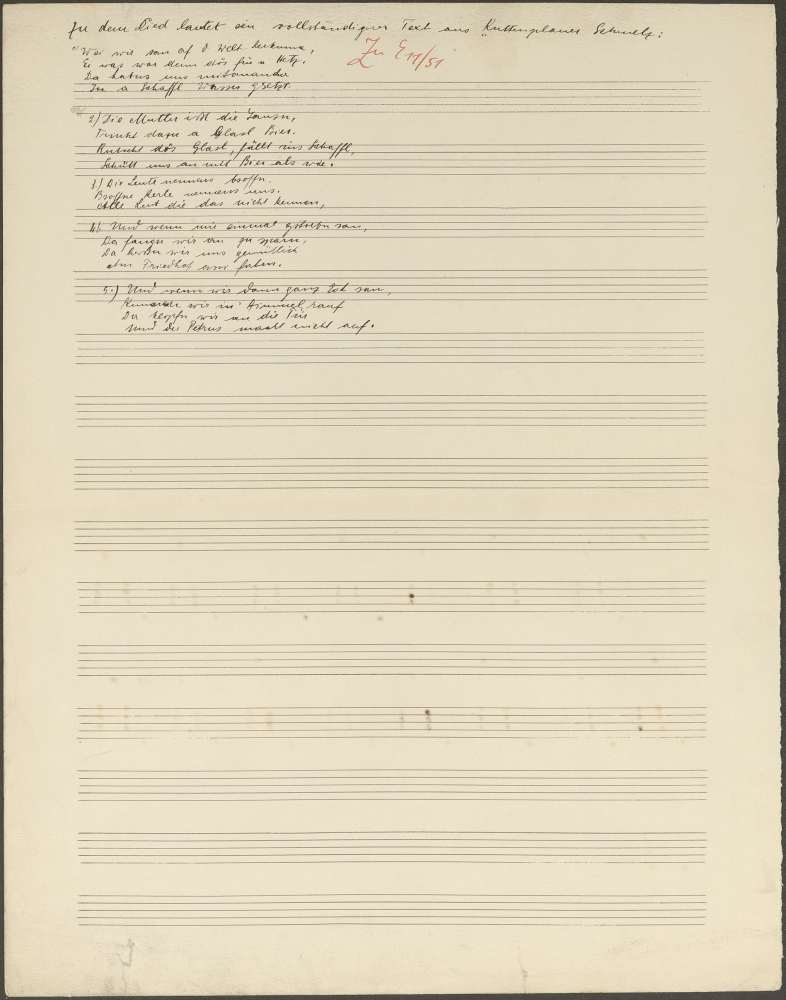 Zu dem Lied lautet ein vollständiger Text aus Kuttenplaner Schmelz:
Zu E 11/51
"Wei wir san af d Welt kumma,
Ei was war denn dös für a Hetz.
Da habns uns mitananda
In a Schaffl Wasser gsetzt.
2.) Die Mutter ißt die Jausn,
Trinkt dazu a Glasl Bier.
Rutscht dös Glasl, fällt ins Schaffl,
Schütt uns an mit Bier als wie.
3.) Die Leute nennens bsoffn.
Bsoffne Kerle nennens uns.
Alle Leut die das nicht kennen,
4.) Und wenn wir einmal gstorbn san,
Da fangen wir an zu sparn,
Da wir uns gemütlich
Am Friedhof assi fahrn.
5.) Und wenn wir dann ganz tot san,
Kumma wir in Himmel rauf
Da klopfn wir an die Tür
Und der Petrus macht nicht auf.